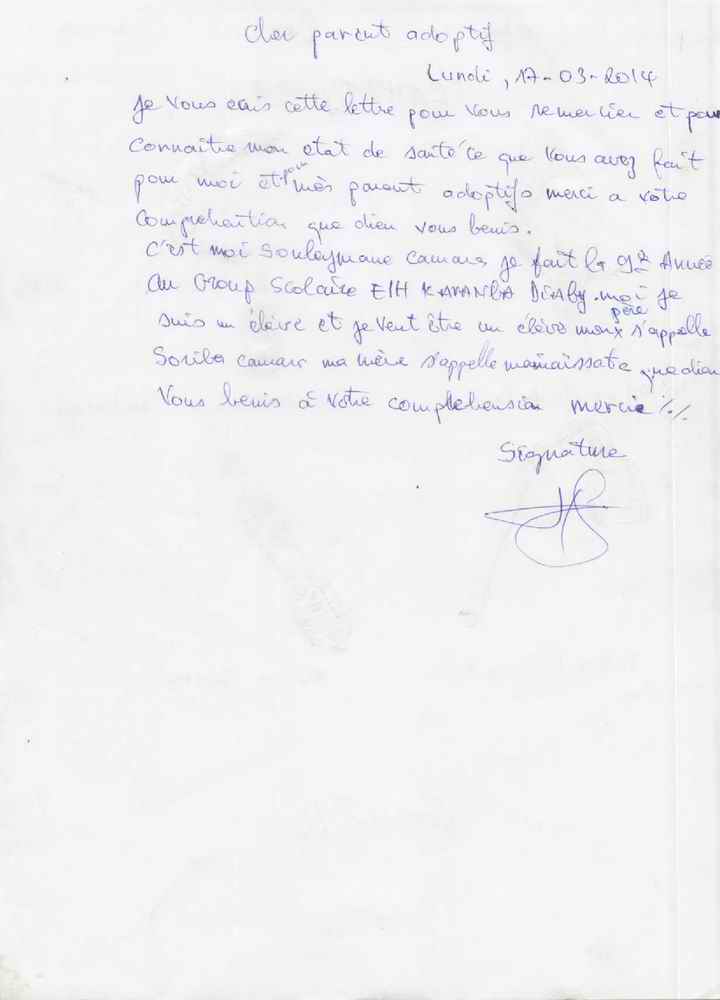 Cher parent adoptif
Lundi, 17-03-2014
Je vous ecris cette lettre pour vous remercier et pour
connaître mon etat de santé ce que vous avez fait
pour moi et pour mes parent adoptifs merci a vôtre
comprehention que dieu vous benis.
C'est moi Souleymane camara je fait la 9e Année
au Group Scolaire ElH KARAMBA DIABY. moi je
suis un élève et je veut être un élève mon père s'appelle
Soriba camara ma mère s'appelle mamaissata que dieu
Vous benis à vôtre comprehension mercie %
Signature